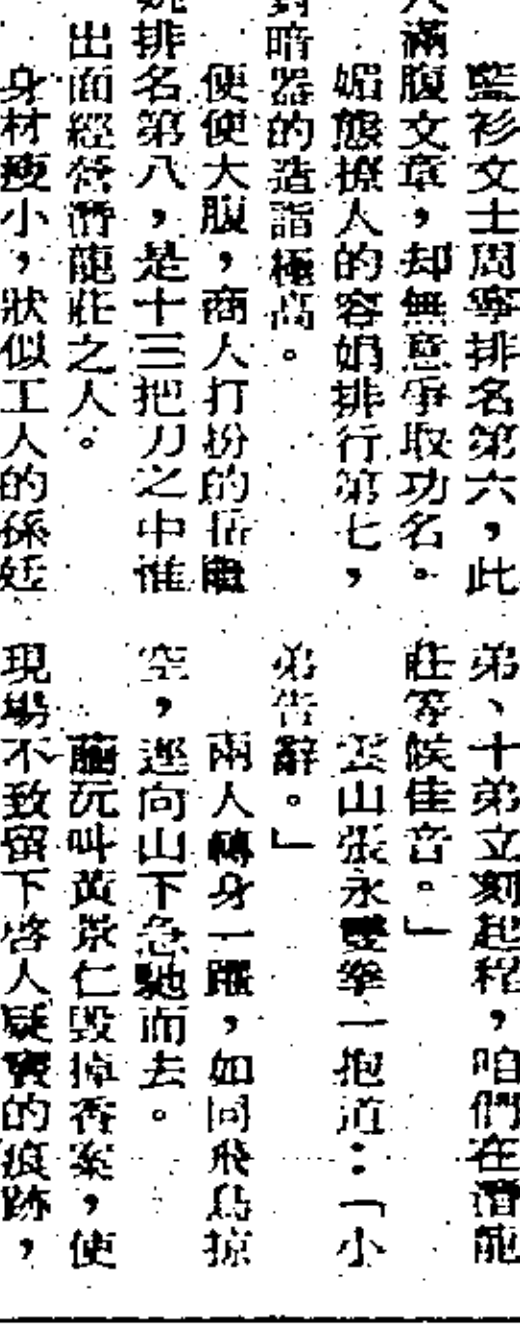 藍衫文士周寧排名第六，此
滿腹文章，却無意爭取功名。
媚態撩人的容娟排行第七，
對暗器的造詣極高。
便便大腹，商人打扮的岳
排名第八，是十三把刀之中惟
出面經營潛龍莊之人。
身材瘦小，狀似工人的孫廷
弟、十弟立刻起程，咱們在潛龍
莊等候佳音。」
雲山張永雙拳一抱道：「小
弟告辭。」
兩人轉身一躍，如同飛鳥掠
空，逕向山下急馳而去。
蘭沅叫黃景仁毀掉香案，使
現場不致留下啓人疑竇的痕跡，